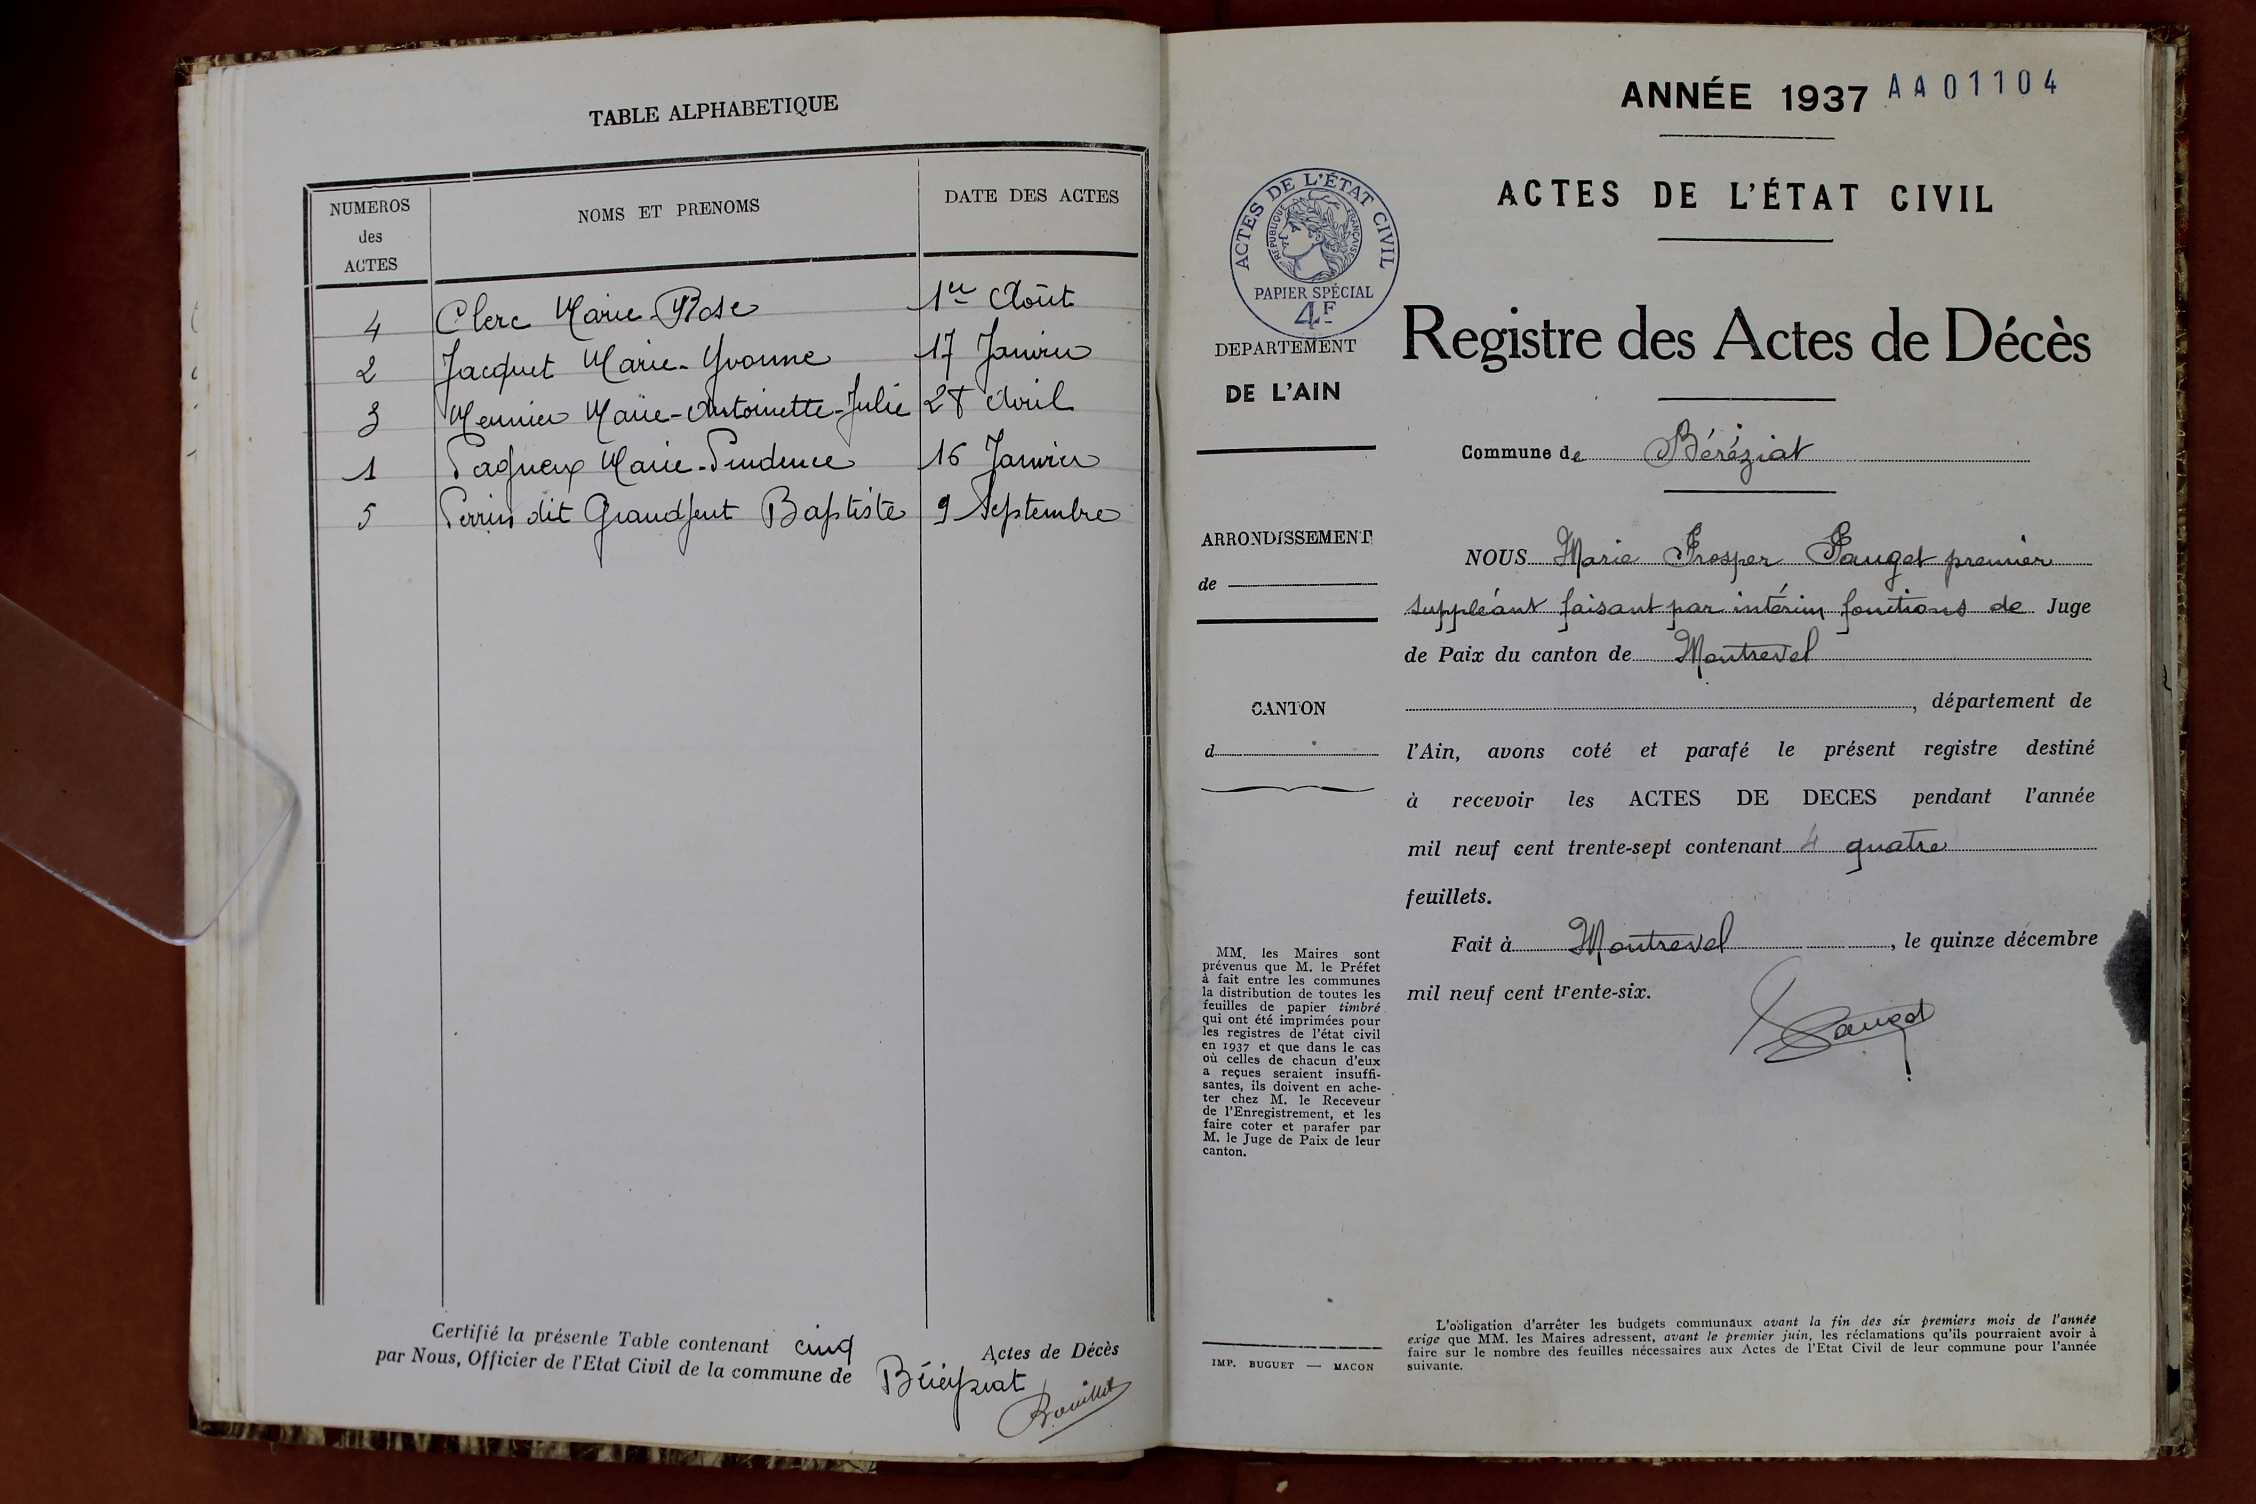 TABLE ALPHABETIQUE
NUMEROS
des
ACTES
NOMS ET PRENOMS
DATE DES ACTES
4 Clerc Marie-Rose 1er Août
2 Jacquet Marie-Yvonne 17 Janvier
3 Meunier Marie-Antoinette-Julie 28 Avril
1 Pagneux Marie-Prudence 16 Janvier
5 Perrin dit Grandjent Baptiste 9 Septembre
Certifié la présente Table contenant cinq Actes de Décès
par Nous, Officier de l'Etat Civil de la commune de Béréyziat
Bouillet
ANNÉE 1937 AA01104
ACTES DE L'ÉTAT CIVIL
ACTES DE L'ÉTAT CIVIL
RÉPUBLIQUE FRANÇAISE
PAPIER SPÉCIAL
4F
DEPARTEMENT
DE L'AIN
ARRONDISSEMENT
de
CANTON
d
MM. les Maires sont
prévenus que M. le Préfet
à fait entre les communes
la distribution de toutes les
feuilles de papier timbré
qui ont été imprimées pour
les registres de l'état civil
en 1937 et que dans le cas
où celles de chacun d'eux
a reçues seraient insuffi-
santes, ils doivent en ache-
ter chez M. le Receveur
de l'Enregistrement, et les
faire coter et parafer par
M. le Juge de Paix de leur
canton.
IMP. BUGUET — MACON
Registre des Actes de Décès
Commune de Béréziat
NOUS Marie Prosper Pauget premier
suppléant faisant par intérim fonctions de Juge
de Paix du canton de Montrevel
, département de
l'Ain, avons coté et parafé le présent registre destiné
à recevoir les ACTES DE DECES pendant l'année
mil neuf cent trente-sept contenant 4 quatre
feuillets.
Fait à Montrevel, le quinze décembre
mil neuf cent trente-six.
Pauget
L'obligation d'arrêter les budgets communaux avant la fin des six premiers mois de l'année
exige que MM. les Maires adressent, avant le premier juin, les réclamations qu'ils pourraient avoir à
faire sur le nombre des feuilles nécessaires aux Actes de l'Etat Civil de leur commune pour l'année
suivante.